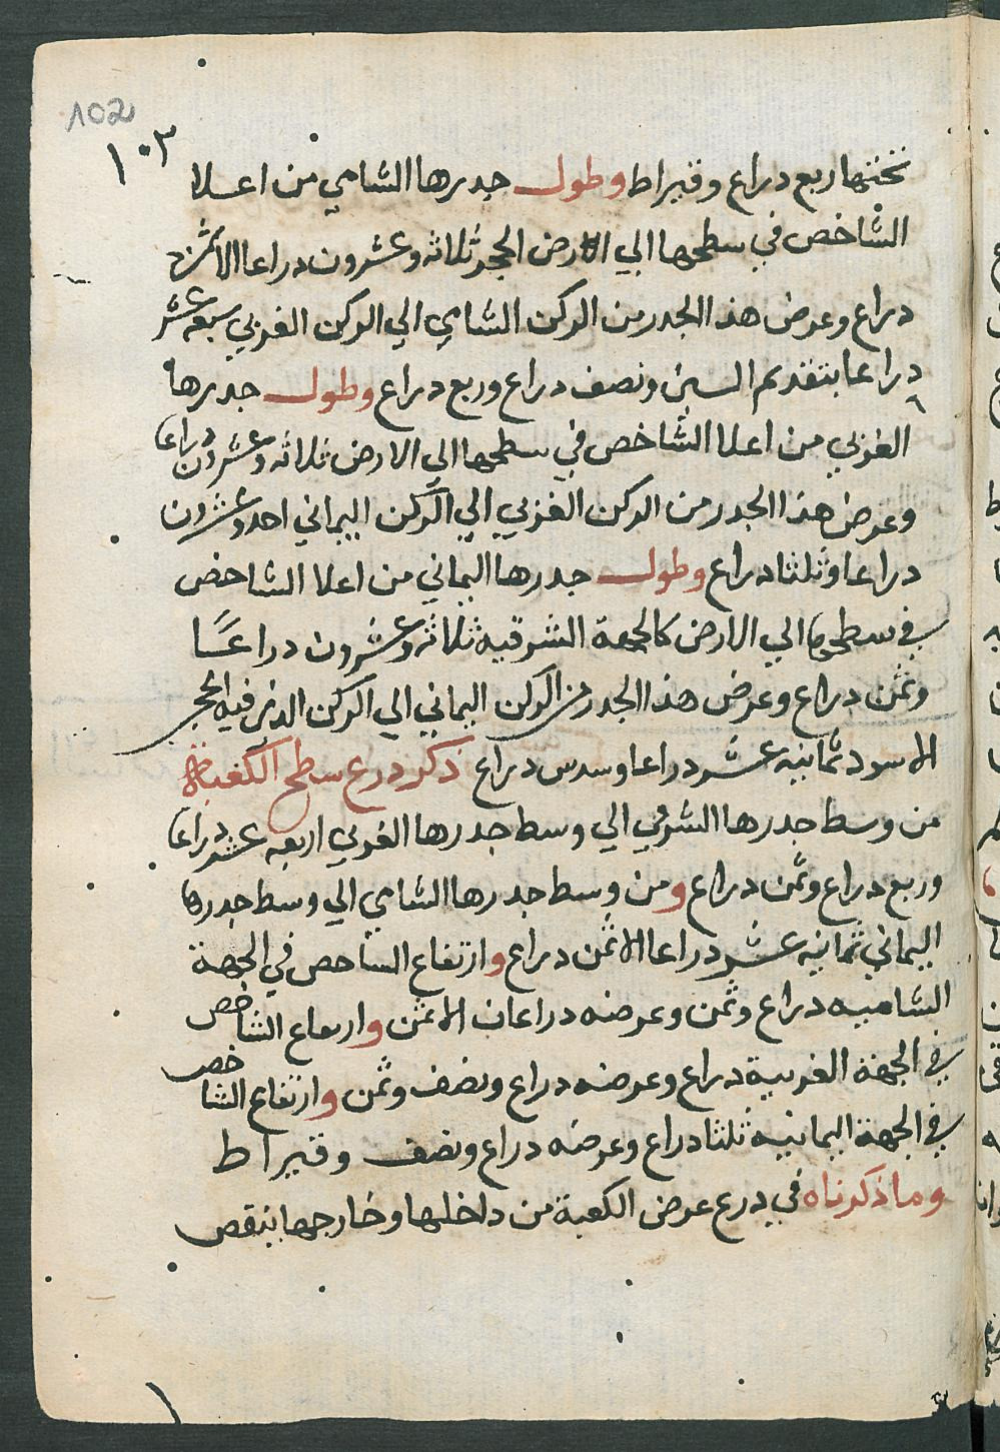 102
١٠٢
تختها ربع دراع وقيراط وطول جدرها الشامي من اعلا
الشاخص في سطحها الي الارض الحجر ثلاثه وعشرون دراعا الا ثمن
دراع وعرض هذا الجدر من الركن الشامي الي الركن الغربي سبعه عشر
دراعا بتقديم السين ونصف دراع وربع دراع وطول جدرها
الغربي من اعلا الشاخص في سطحها الي الارض ثلاثه وعشرون دراعا
وعرض هذا الجدر من الركن الغربي الي الركن اليماني احد وعشرون
دراعا وثلثا دراع وطول جدرها اليماني من اعلا الشاخص
في سطحها الي الارض كالجهة الشرقيه ثلاثه وعشرون دراعًا
وثمن دراع وعرض هذا الجدر من الركن اليماني الي الركن الذي فيه الحجر
الاسود ثمانيه عشر دراعا وسدس دراع ذكر درع سطح الكعبة
من وسط جدرها الشرقي الي وسط جدرها الغربي اربعه عشر دراعا
وربع دراع وثمن دراع ومن وسط جدرها الشامي الي وسط جدرها
اليماني ثمانيه عشر دراعا الا ثمن دراع وارتفاع الشاحص في الجهة
الشاميه دراع وثمن وعرضه دراعان الا ثمن وارتفاع الشاخص
في الجهة الغربية دراع وعرضه دراع ونصف وثمن وارتفاع الشاخص
في الجهة اليمانيه ثلثا دراع وعرضه دراع ونصف وقيراط
وما ذكرناه في درع عرض الكعبة من داخلها وخارجها ينقص